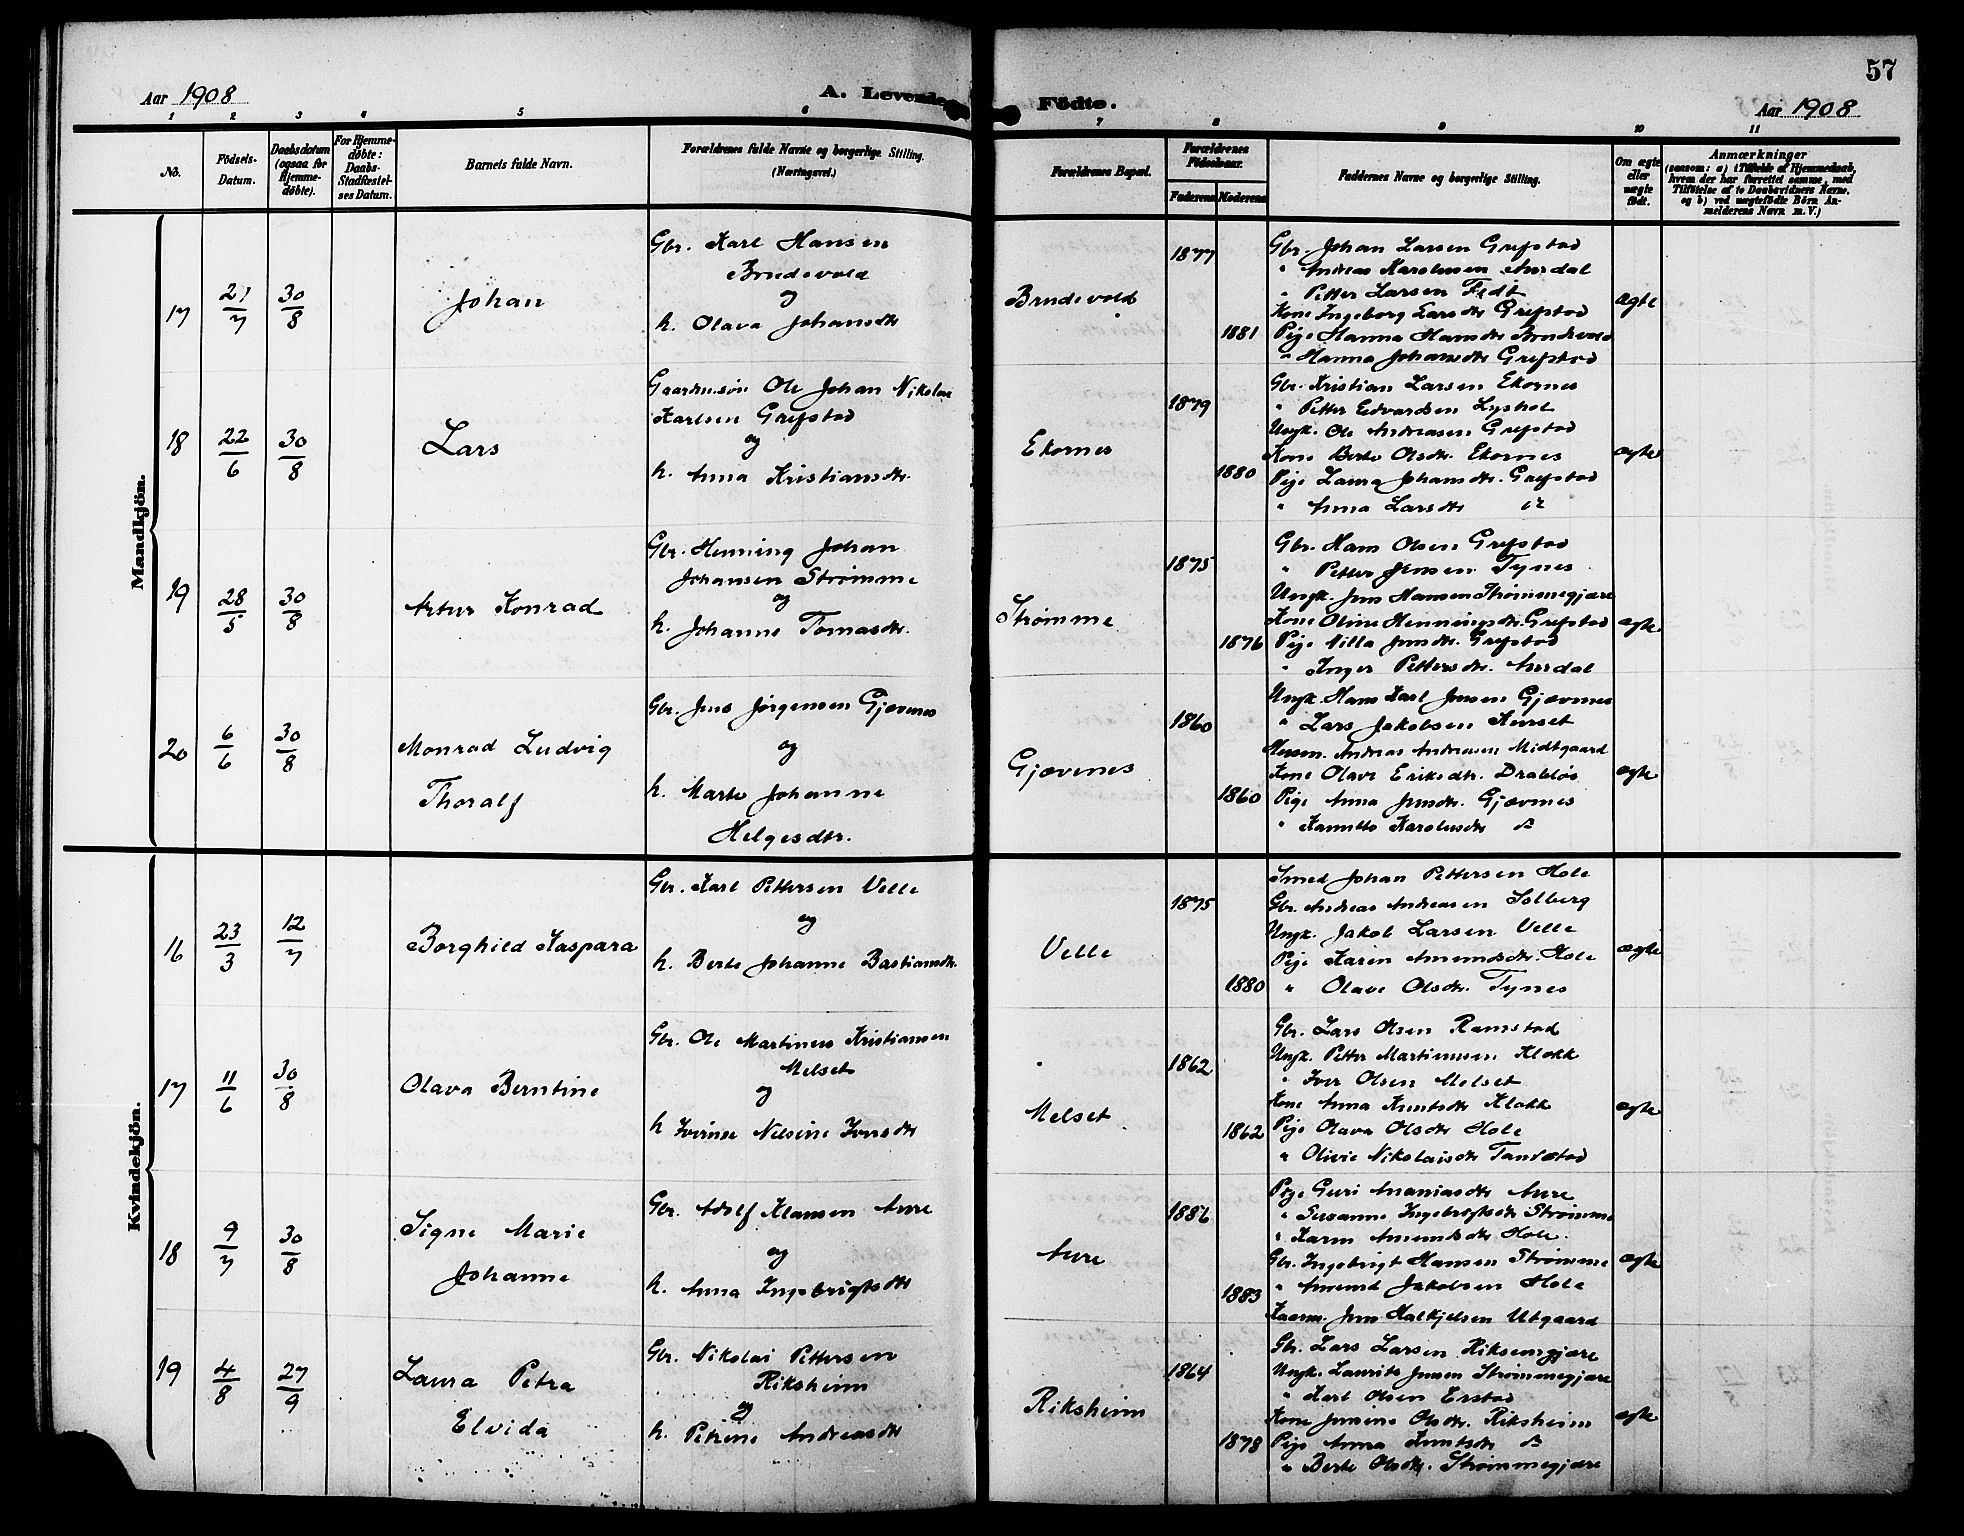 57
Aar 1908
A. Levende
Födte.
Aar 1908
1 2 3 4 5 6 7 8 9 10 11
No.
Födsels-
Datum.
Daabsdatum
(ogsaa for
Hjemme-
döbte).
For Hjemme-
døbte:
Daabs-
Stadfæstel-
ses Datum.
Barnets fulde Navn.
Forældrenes fulde Navne og borgerlige Stilling.
(Næringsvei.)
Forældrenes Bopæl.
Forældrenes
Födselsaar.
Faderens
Moderens
Faddernes Navne og borgerlige Stilling.
Om ægte
eller
uægte
födt.
Anmærkninger
(saasom: a) i Tilfælde af Hjemmedaab,
hvem der har forrettet samme, med
Tilföielse af to Daabsvidners Navne,
og b) ved uægtefödte Börn An-
melderens Navn m. V.)
Mandkjön.
17
21/7
30/8
Johan
Gbr. Karl Hansen
Brudevold
og
h. Olava Johansdtr
Brudevold
1877
1881
Gbr. Johan Larsen Grepstad
" Andreas Karolusen Aurdal
" Petter Larsen Fedt
Kone Ingeborg Larsdtr Grepstad
Pige Hanna Hansdtr Brudevold
" Hanna Johansdtr Grepstad
ægte
18
22/6
30/8
Lars
Gaardmsøn Ole Johan Nikolai
Karlsen Grepstad
og
h. Anna Kristiansdtr.
Ekornes
1879
1880
Gbr. Kristian Larsen Ekornes
" Petter Edvardsen Lyshol
Ungk. Ole Andreasen Grepstad
Kone Berte Olsdtr. Ekornes
Pige Laura Johansdtr. Grepstad
" Anna Larsdtr
ægte
19
28/5
30/8
Artur Konrad
Gbr. Henning Johan
Johansen Strømme
og
h. Johanne Tomasdtr.
Strømme
1875
1876
Gbr. Hans Olsen Grepstad
" Petter Jensen Tynes
Ungk. Jens Hansen Strømmegjære
Kone Oline Henningsdtr. Grepstad
Pige Nilla Jensdtr. Grepstad
" Inger Pettersdtr. Aurdal
ægte
20
6/6
30/8
Monrad Ludvig
Thoralf
Gbr. Jens Jørgensen Gjævenes
og
h. Marte Johanne
Helgesdtr.
Gjævenes
1860
1860
Ungk. Hans Karl Jensen Gjævenes
" Lars Jakobsen Kurset
Andreas Andreasen Midtgaard
Kone Olave Eriksdtr. Drabløs
Pige Anna Jensdtr. Gjævnes
" Karolusdtr do
ægte
Kvindekjön.
16
23/3
12/7
Borghild Kaspara
Gbr. Karl Pettersen Velle
og
h. Berte Johanne Bastiansdtr.
Velle
1875
1880
Smed Johan Pettersen Hole
Gbr. Andreas Andreasen Solberg
Ungk. Jakob Larsen Velle
Pige Karen Amundsdtr. Hole
" Olave Olsdtr. Tynes
ægte
17
11/6
30/8
Olava Berntine
Gbr. Ole Martinus Kristiansen
Melset
og
h Iverine Nilsine Iversdtr
Melset
1862
1862
Gbr. Lars Olsen Ramstad
Ungk. Petter Martinusen Klokk
" Iver Olsen Melset
Kone Anna Knutsdtr Klokk
Pige Olava Olsdtr Hole
" Olivie Nikolaisdtr Tandstad
ægte
18
9/7
30/8
Signe Marie
Johanne
Gbr. Adolf Klausen Aure
og
h. Anna Ingebrigtsdtr
Aure
1886
1883
Pige Guri Ananiasdtr Aure
" Susanne Ingebrigtsdtr Strømme
" Karen Amundsdtr Hole.
Gbr. Ingebrigt Hansen Strømme
" Amund Jakobsen Hole
Kaarm. Jens Halkjelsen Utgaard
ægte
19
4/8
27/9
Laura Petra
Elvida
Gbr. Nikolai Pettersen
Riksheim
og
h. Petrine Andreasdtr
Riksheim
1864
1878
Gbr. Lars Larsen Riksemgjære
Ungk. Laurits Jensen Strømmegjære
" Karl Olsen Erstad
Kone Jensine Olsdtr. Riksheim
Pige Anna Knutsdtr do
" Berte Olsdtr. Strømmegjære
ægte